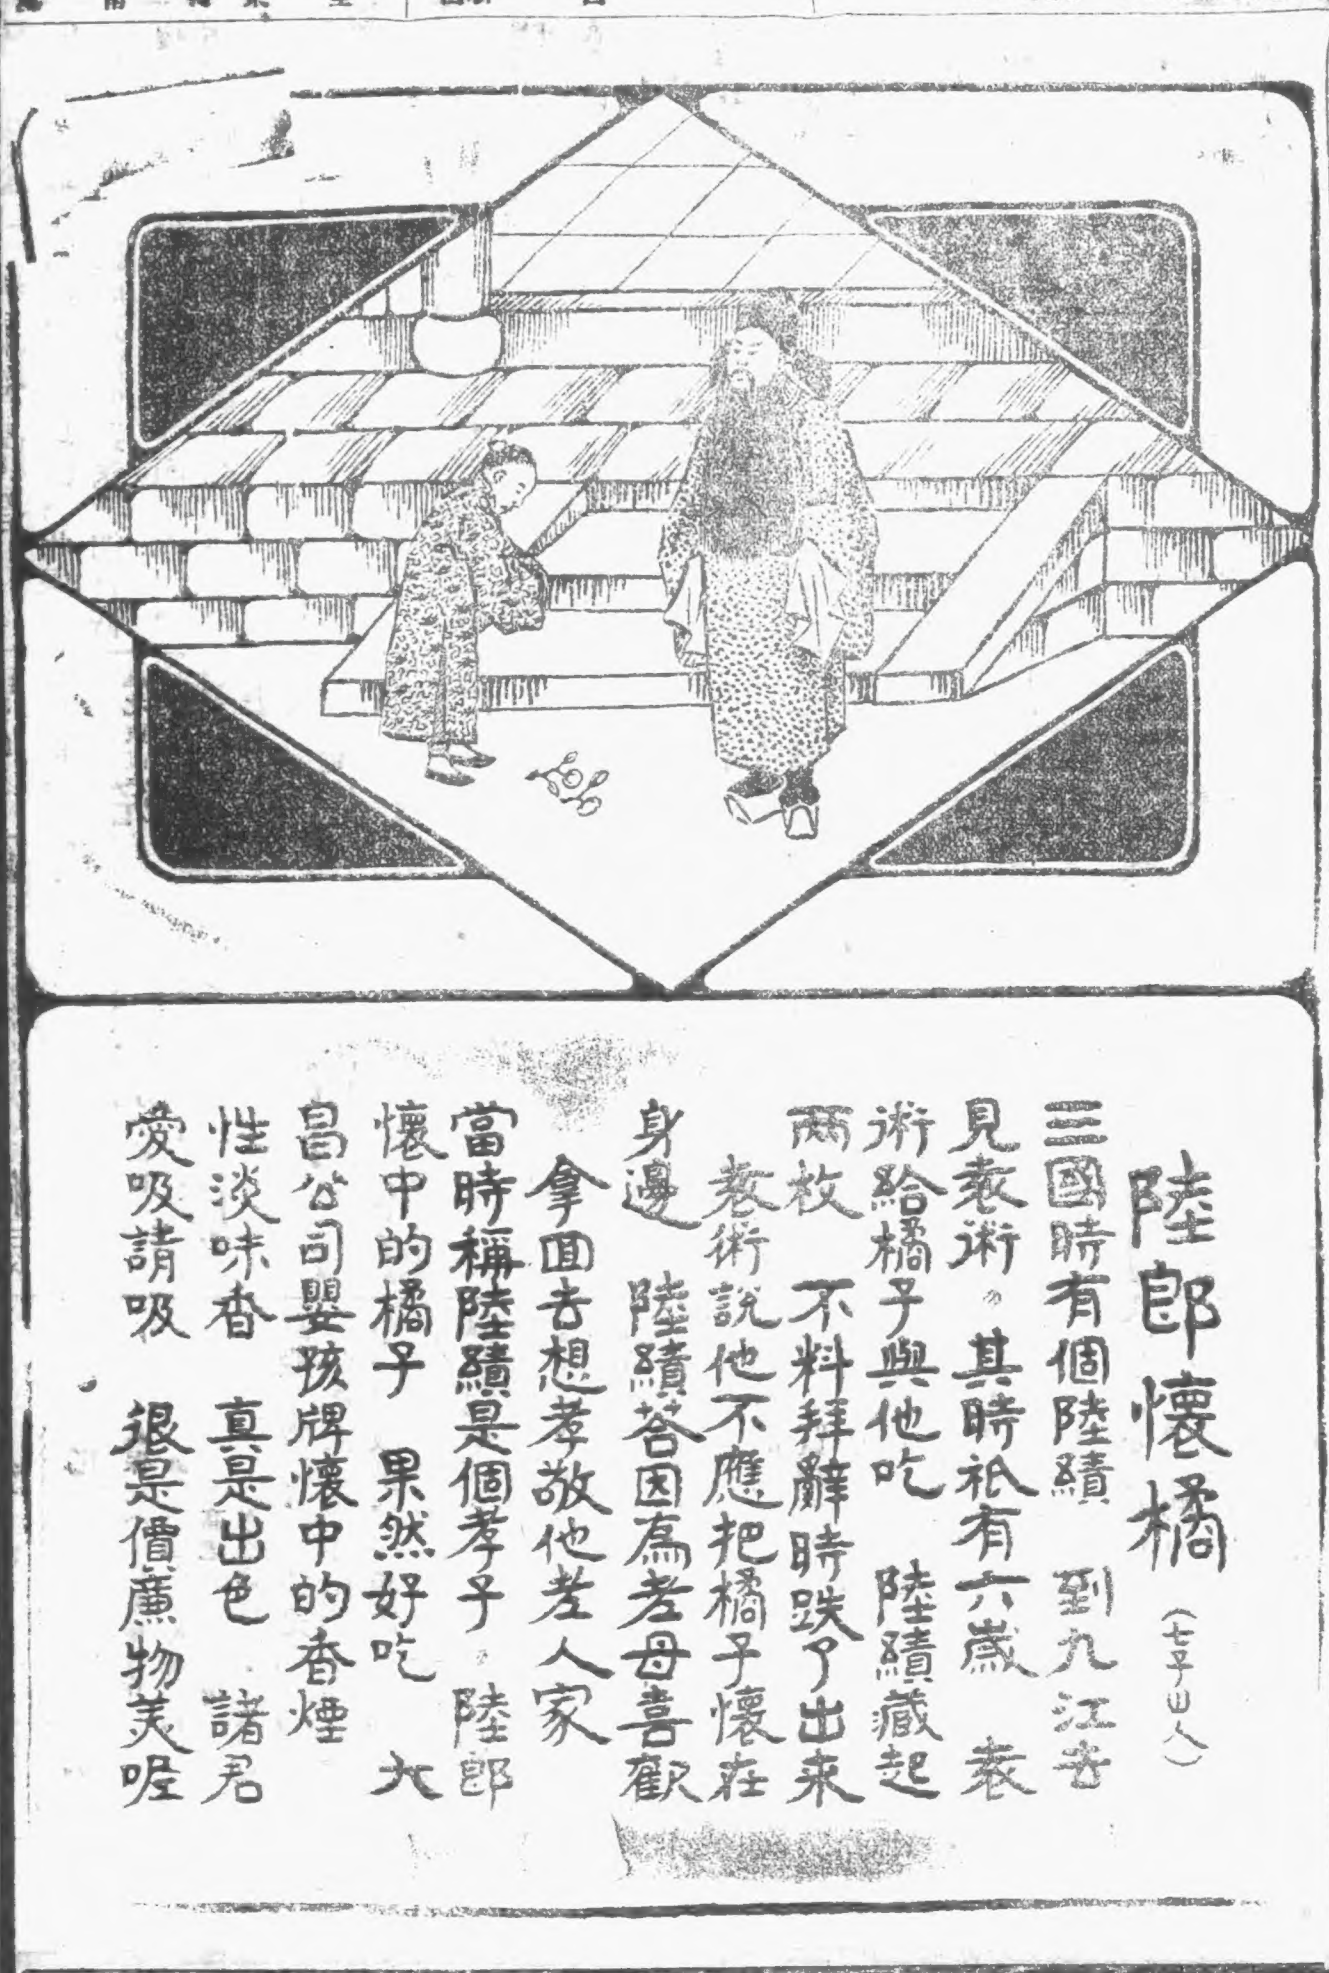 陸郎懷橘
三國時有個陸績　到九江去
見袁術。其時祇有六歲　袁
術給橘子與他吃　陸績藏起
兩枚　不料拜辭時跌了出來
袁術說他不應把橘子懷在
身邊　陸績荅因為老母喜歡
拿回去想孝敬他老人家
當時稱陸績是個孝子。陸郎
懷中的橘子　果然好吃　大
昌公司嬰孩牌懷中的香煙
性淡味香　真是出色　諸君
愛吸請吸　很是價廉物美喔